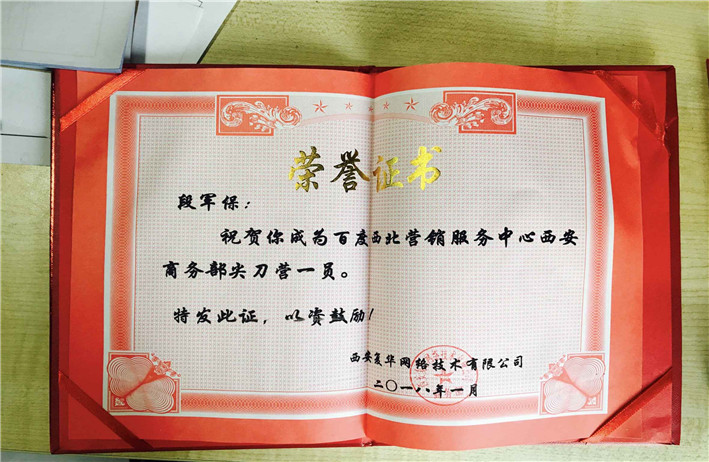 荣誉证书
段军保：
祝贺你成为百度西北营销服务中心西安
商务部尖刀营一员。
特发此证，以资鼓励！
西安复华网络技术有限公司
二〇一八年一月